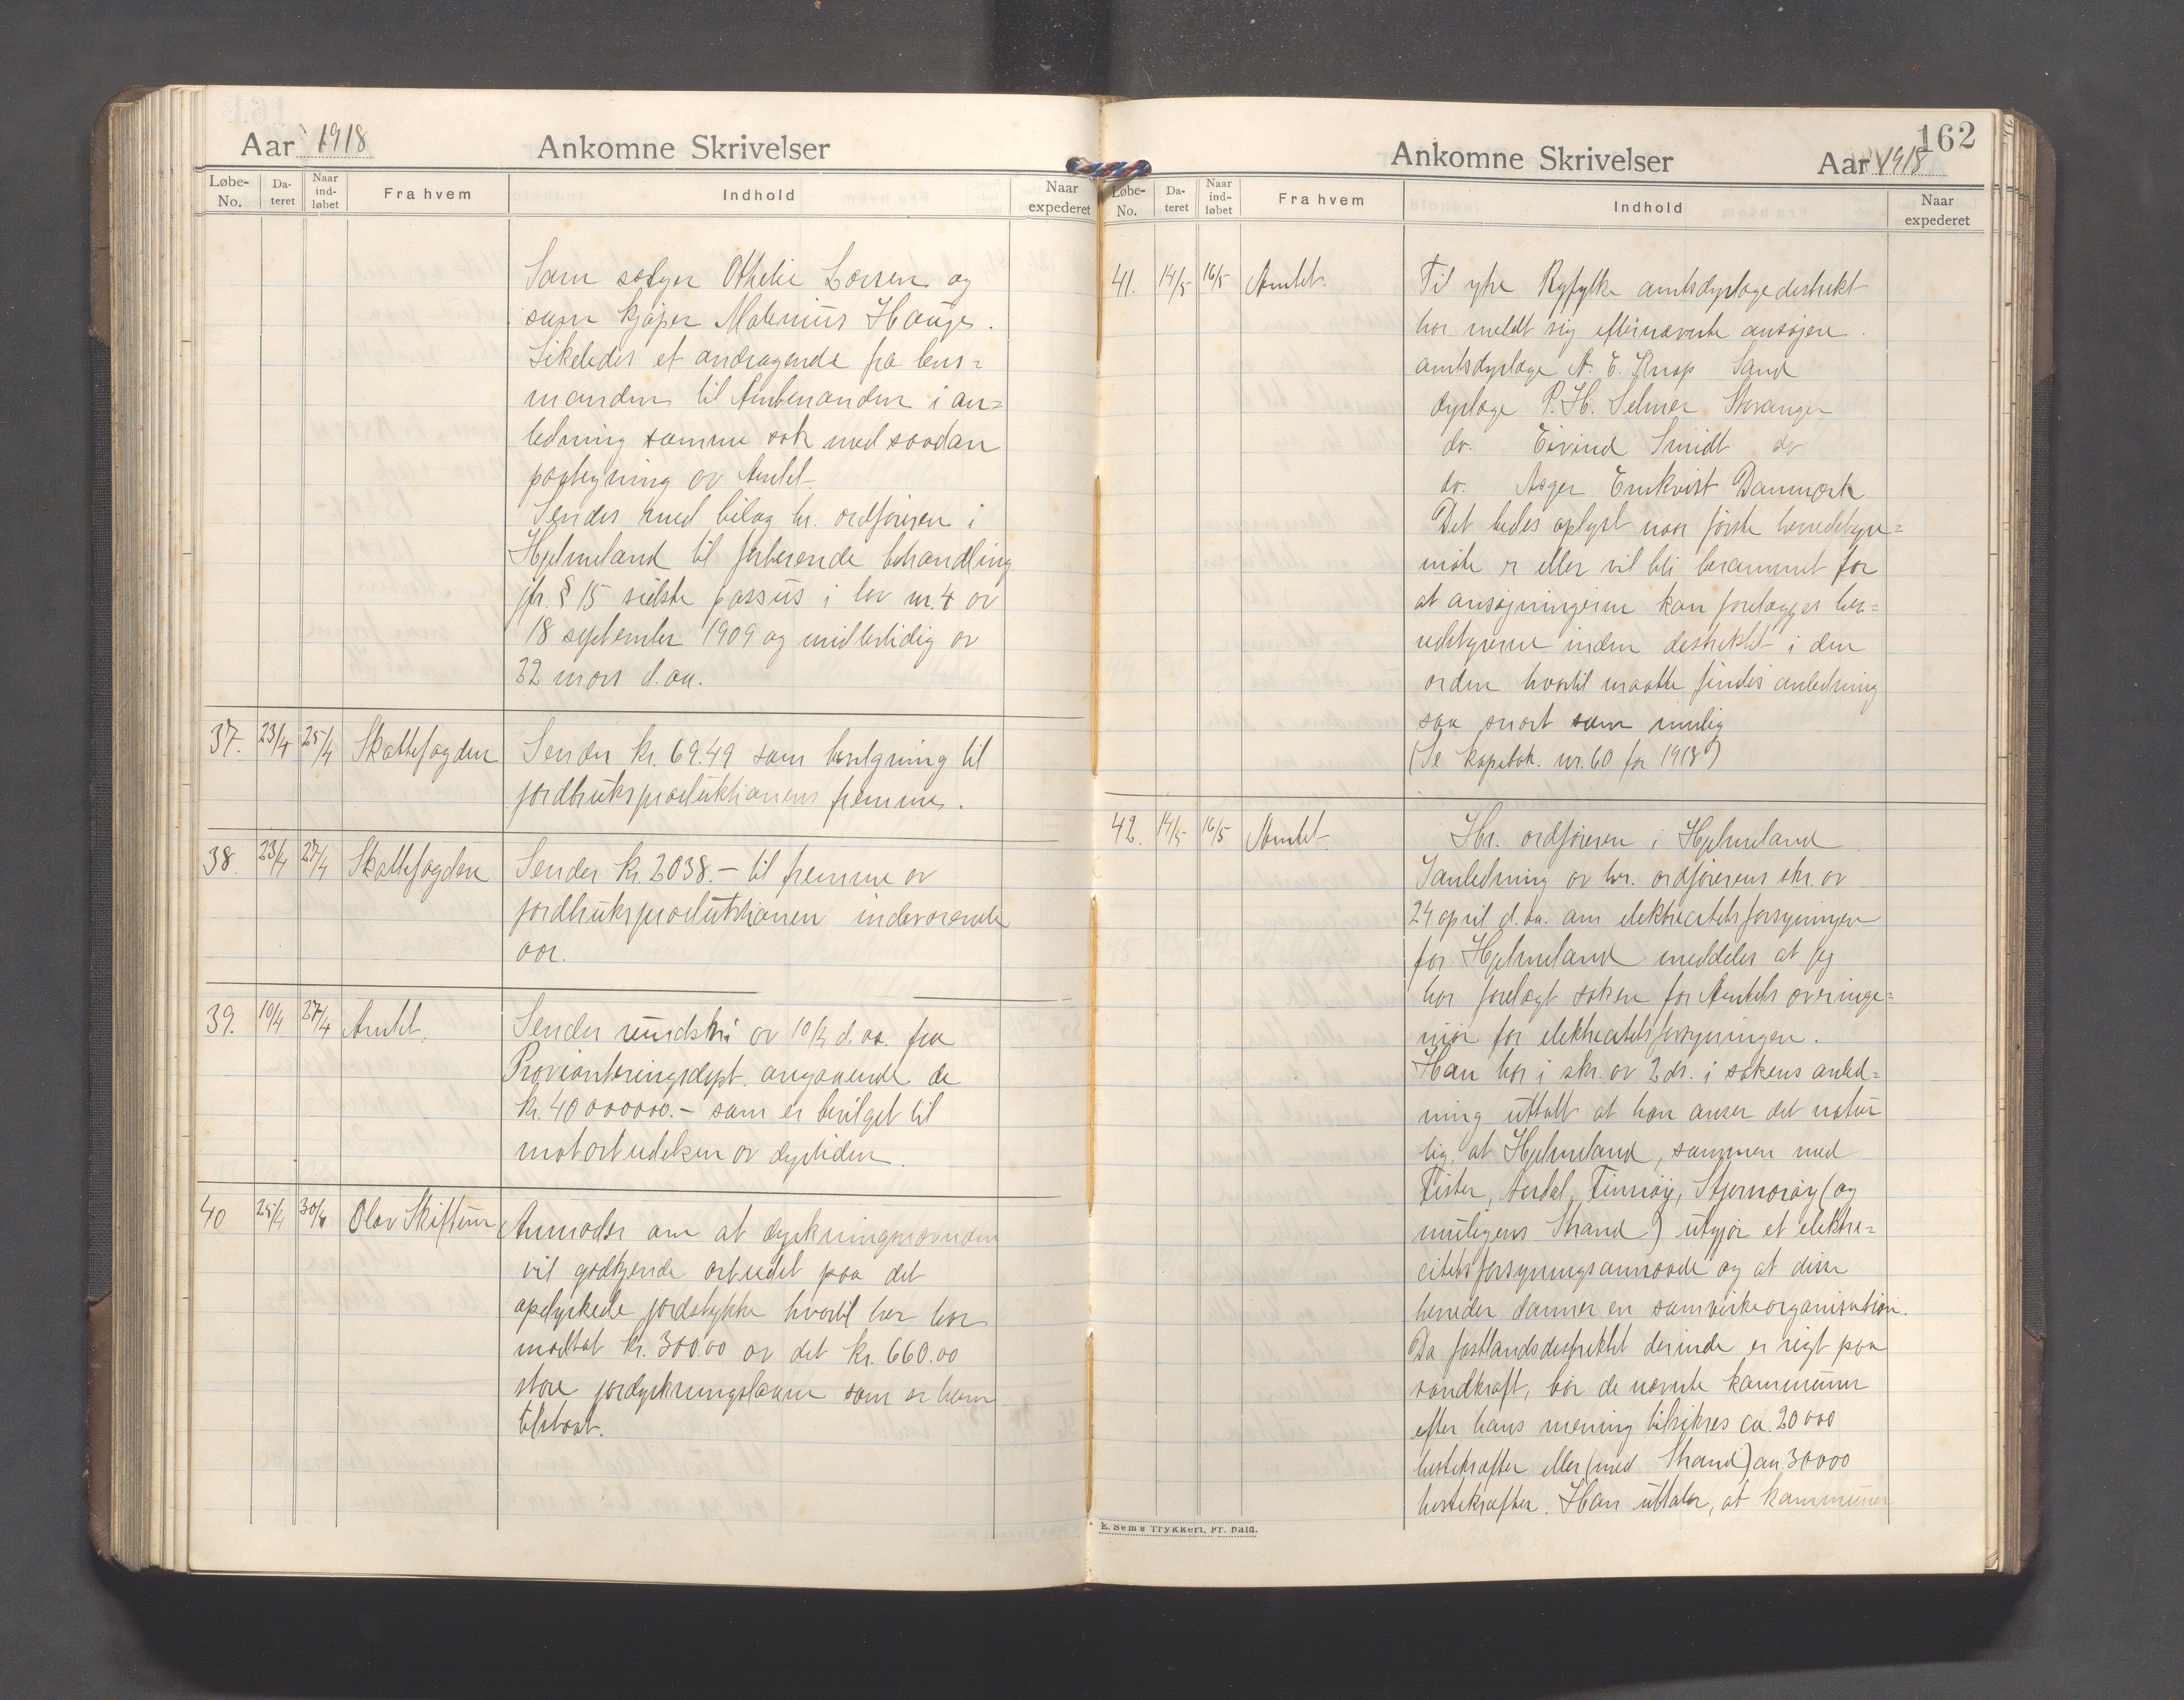 Aar 1918
Ankomne Skrivelser
Løbe-No. Da-teret Naar ind-løbet Fra hvem Indhold Naar expederet
Som sælger Othelie Larsen og
som kjøper Malenius Hauge.
Likeledes et andragende fra lens=
manden til Amtmanden i an=
ledning samme sak med saadan
paategning av Amtet.
Sendes med bilag hr. ordføreren i
Hjelmeland til forberende behandling
jfr. § 15 sidste passus i lov nr. 4 av
18 september 1909 og midlertidig av
22 mars d. aa.
37. 23/4 25/4 Skattefogden Sender kr. 69.49 som bevilgning til
jordbruksproduktionens fremme.
38. 23/4 27/4 Skattefogden Sender kr. 2038.- til fremme av
jordbruksproduktionen indeværende
aar.
39. 10/4 27/4 Amtet. Sender rundskri av 10/4 d. aa. fra
Provianteringsdept. angaaende de
kr. 40 000000.- som er bevilget til
motarbeidelsen av dyrtiden.
40 25/4 30/4 Olav Skiftun Anmoder om at dyrkningsnævnden
vil godkjende arbeidet paa det
opdyrkede jordstykke hvortil her har
modtat kr. 300.00 av det kr. 660.00
store jorddyrkningslaan som er ham
tilstaat.
162
Ankomne Skrivelser
Aar 1918
Løbe-No. Da-teret Naar ind-løbet Fra hvem Indhold Naar expederet
41. 14/5 16/5 Amtet. Til ytre Ryfylke amtsdyrlægedistrikt
har meldt sig efternævnte ansøjere.
amtsdyrlæge A. E. Krusp Sand
dyrlæge P. H. Selmer Stavanger
do. Eivind Smidt do
do. Asger Emkvist Danmark
Det bedes oplyst naar første herredstyre=
møte er eller vil bli berammet for
at ansøjningerne kan forelægges her=
redstyrerne inden destriktet i den
orden hvortil maatte findes anledning
saa snart som mulig
(Se kopibok. nr. 60 for 1918)
42. 14/5 16/5 Amtet. Hr. ordføreren i Hjelmeland
I anledning av hr. ordførerens skr. av
24 april d. aa. om elektricitetsforsyningen
for Hjelmeland meddeles at jeg
har forelagt saken for Amtets overinge=
niør for elektricitetsforsyningen.
Han har i skr. av 2 ds. i sakens anled=
ning uttalt at han anser det natur
lig, at Hjelmeland, sammen med
Fister, Aardal, Finnøy, Stjernarøy (og
muligens Strand) utgjør et elektri=
citetsforsyningsomraade og at disse
herreder danner en samvirkeorganisation.
Da fastlandsdistriktet derinde er rigt paa
vandkraft, bør de nævnte kommuner
efter hans mening tilsikres ca. 20 000
hestekræfter eller (med Strand) ca. 30000
hestekræfter. Han uttaler, at kommuner
E. Sem's Trykkeri, Fr. hald.